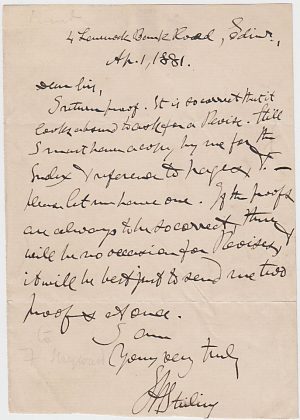 4 Laverock Bank Road, Edinr.,
Ap. 1, 1881.
Dear Sir,
I return proof. It is so correct that it
looks absurd to ask for a Revise. Still
I must have a copy by me for the
Index & reference to pages &c. –
please let me have one. If the proofs
are always to be so correct, there
will be no occasion for Revises, &
it will be best just to send me two
proofs at once.
I am
Yours very truly
J H Stirling
to